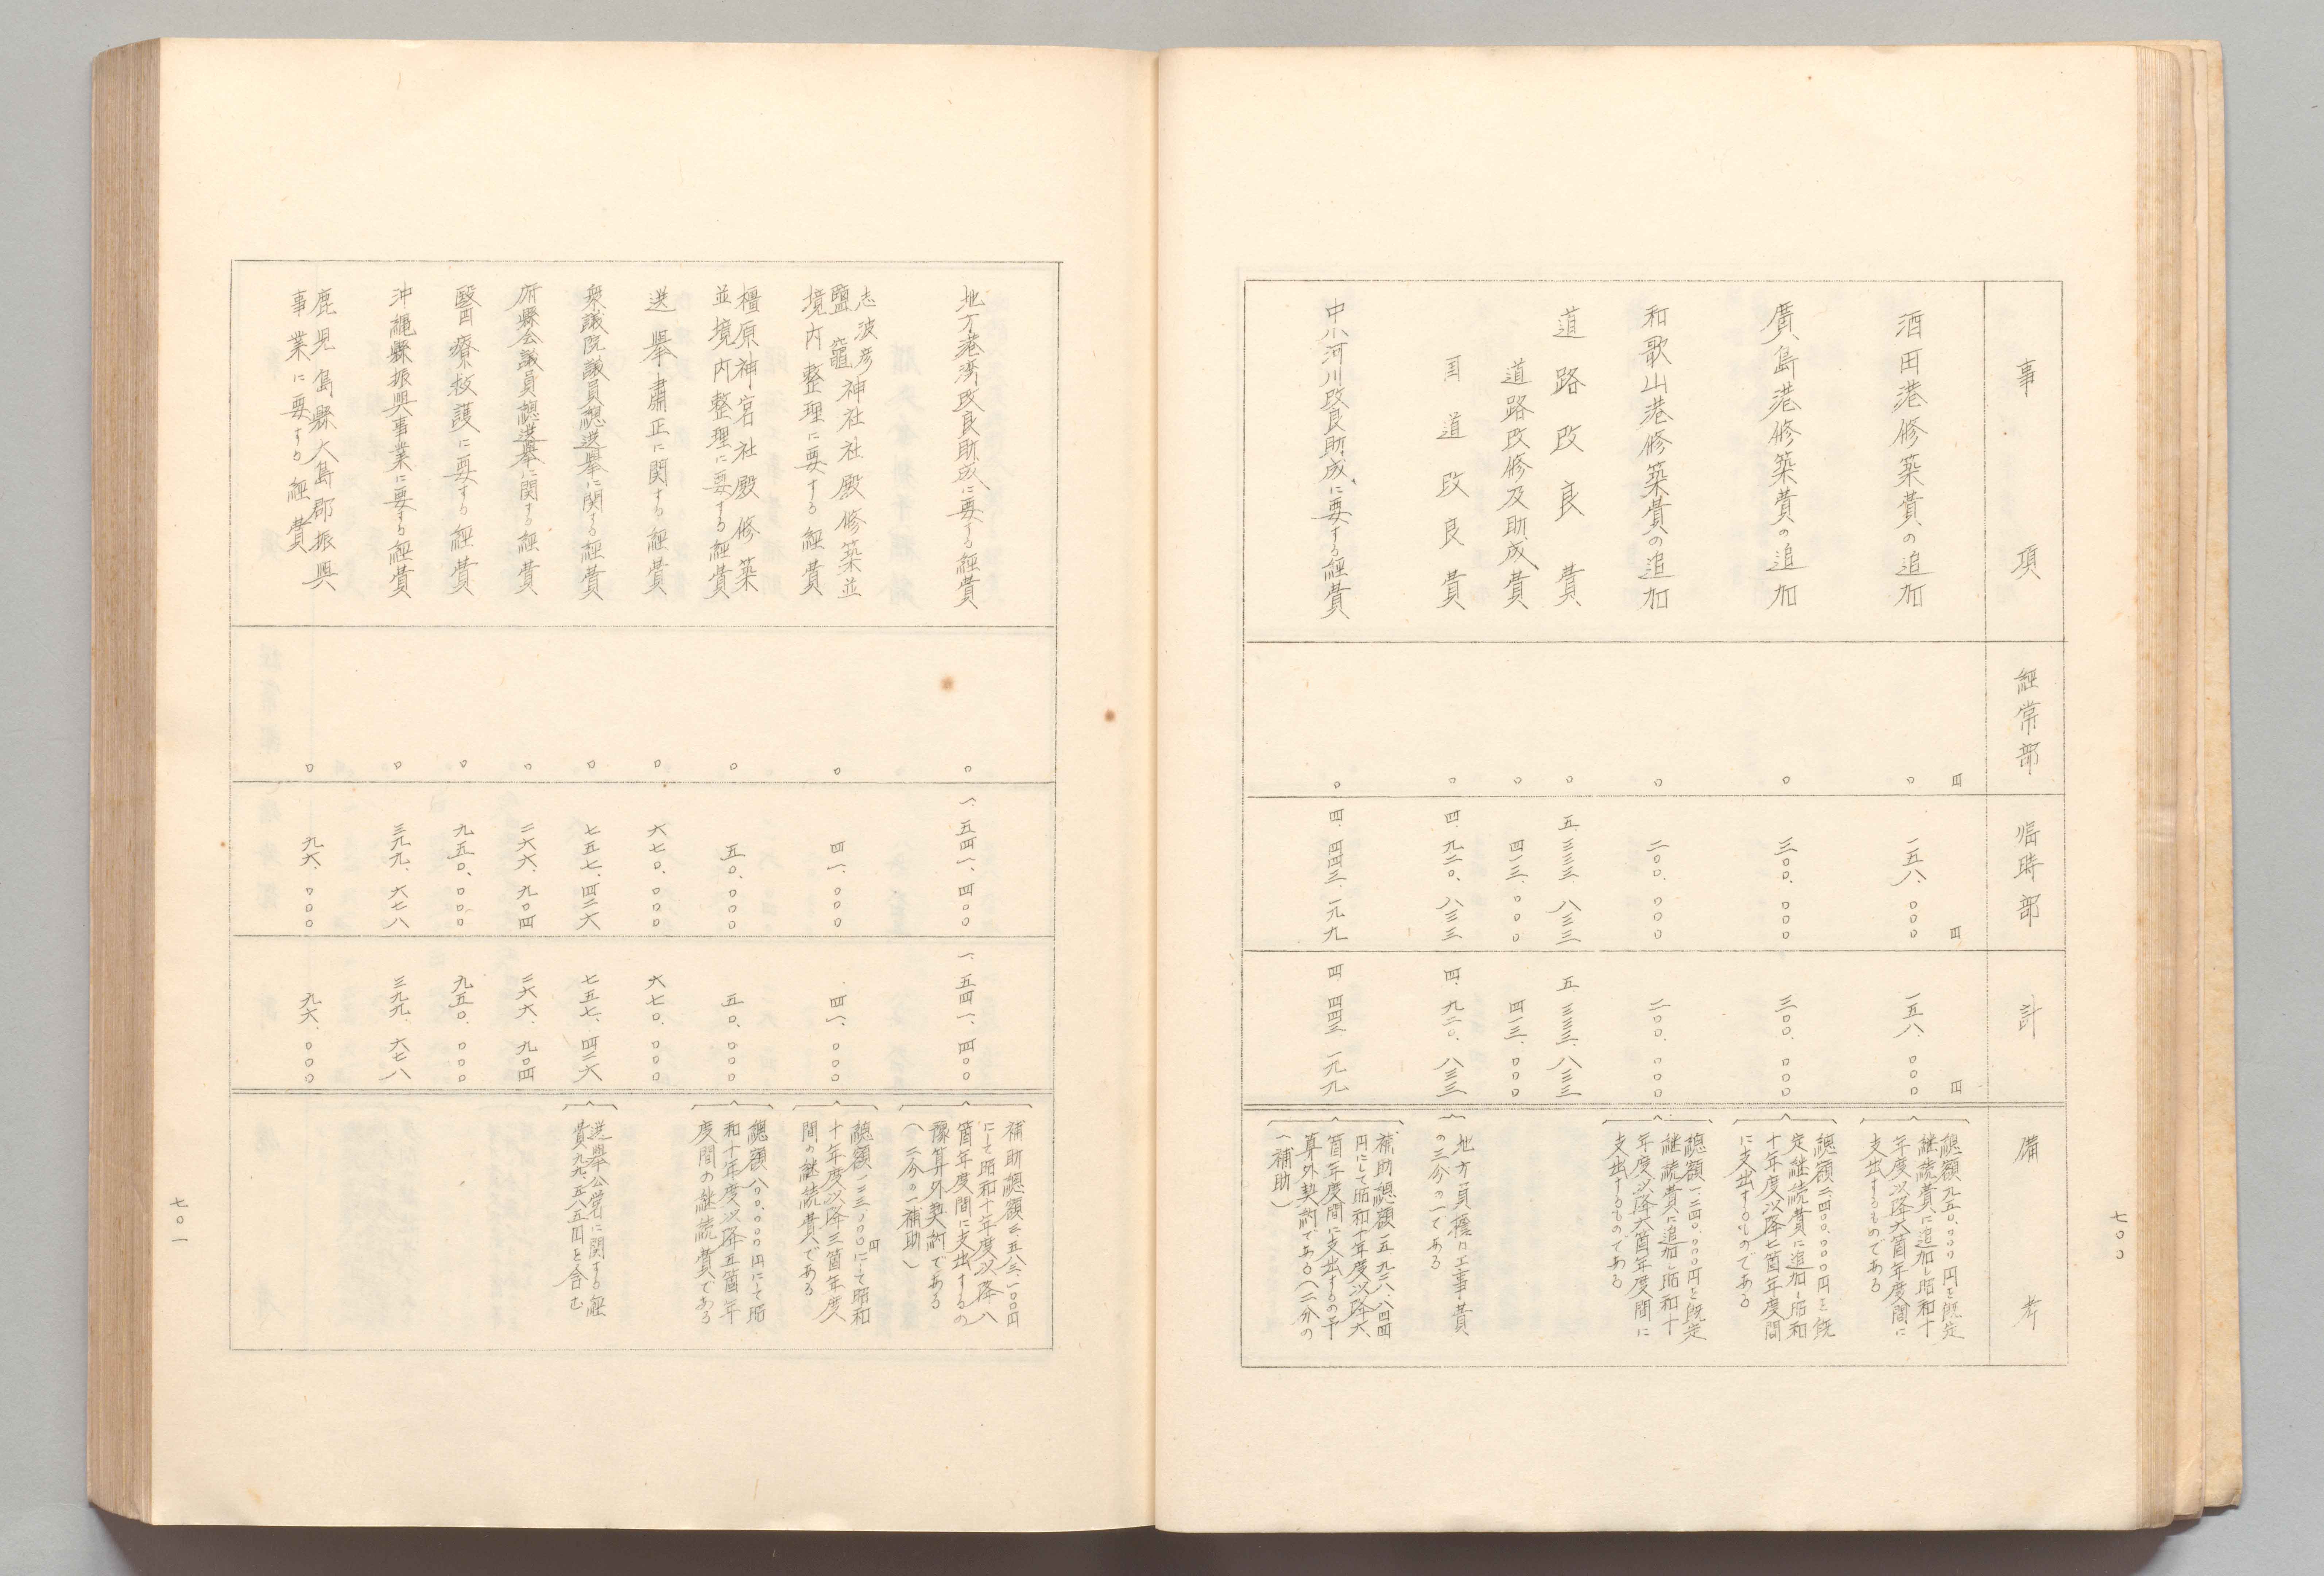 七〇〇
事項
経常部
臨時部
計
備考
円
円
円
酒田港修築費の追加
〇
一五八、〇〇〇
一五八、〇〇〇
総額九五〇、〇〇〇円を既定
継続費に追加し昭和十
年度以降六箇年度間に
支出するものである
廣島港修築費の追加
〇
三〇〇、〇〇〇
三〇〇、〇〇〇
総額二、四〇〇、〇〇〇円を既
定継続費に追加し昭和
十年度以降七箇年度間
に支出するものである
和歌山港修築費の追加
〇
二〇〇、〇〇〇
二〇〇、〇〇〇
総額一、二四〇、〇〇〇円を既定
継続費に追加し昭和十
年度以降六箇年度間に
支出するものである
道路改良費
〇
五、三三三、八三三
五、三三三、八三三
道路改修及助成費
〇
四一三、〇〇〇
四一三、〇〇〇
国道改良費
〇
四、九二〇、八三三
四、九二〇、八三三
地方負擔は工事費
の三分の一である
中小河川改良助成に要する経費
〇
四、四四三、一九九
四、四四三、一九九
補助総額一五、九二八、八四四
円にして昭和十年度以降六
箇年度間に支出するの予
算外契約である(二分の
一補助)
地方港湾改良助成に要する経費
〇
一、五四一、四〇〇
一、五四一、四〇〇
補助総額二、五八三、一〇〇円
にして昭和十年度以降八
箇年度間に支出するの
豫算外契約である
(二分の一補助)
志波彦
鹽竈神社社殿修築並
境内整理に要する経費
〇
四一、〇〇〇
四一、〇〇〇
総額一二三、〇〇〇円にして昭和
十年度以降三箇年度
間の継続費である
橿原神宮社殿修築
並境内整理に要する経費
〇
五〇、〇〇〇
五〇、〇〇〇
総額八〇〇、〇〇〇円にして昭
和十年度以降五箇年
度間の継続費である
選擧肅正に関する経費
〇
六七〇、〇〇〇
六七〇、〇〇〇
衆議院議員総選擧に関する経費
〇
七五七、四二六
七五七、四二六
選擧公営に関する経
費九九、五八五円を含む
府縣会議員総選擧に関する経費
〇
二六六、九〇四
二六六、九〇四
醫療救護に要する経費
〇
九五〇、〇〇〇
九五〇、〇〇〇
沖縄縣振興事業に要する経費
〇
三九九、六七八
三九九、六七八
鹿児島縣大島郡振興
事業に要する経費
〇
九六、〇〇〇
九六、〇〇〇
七〇一